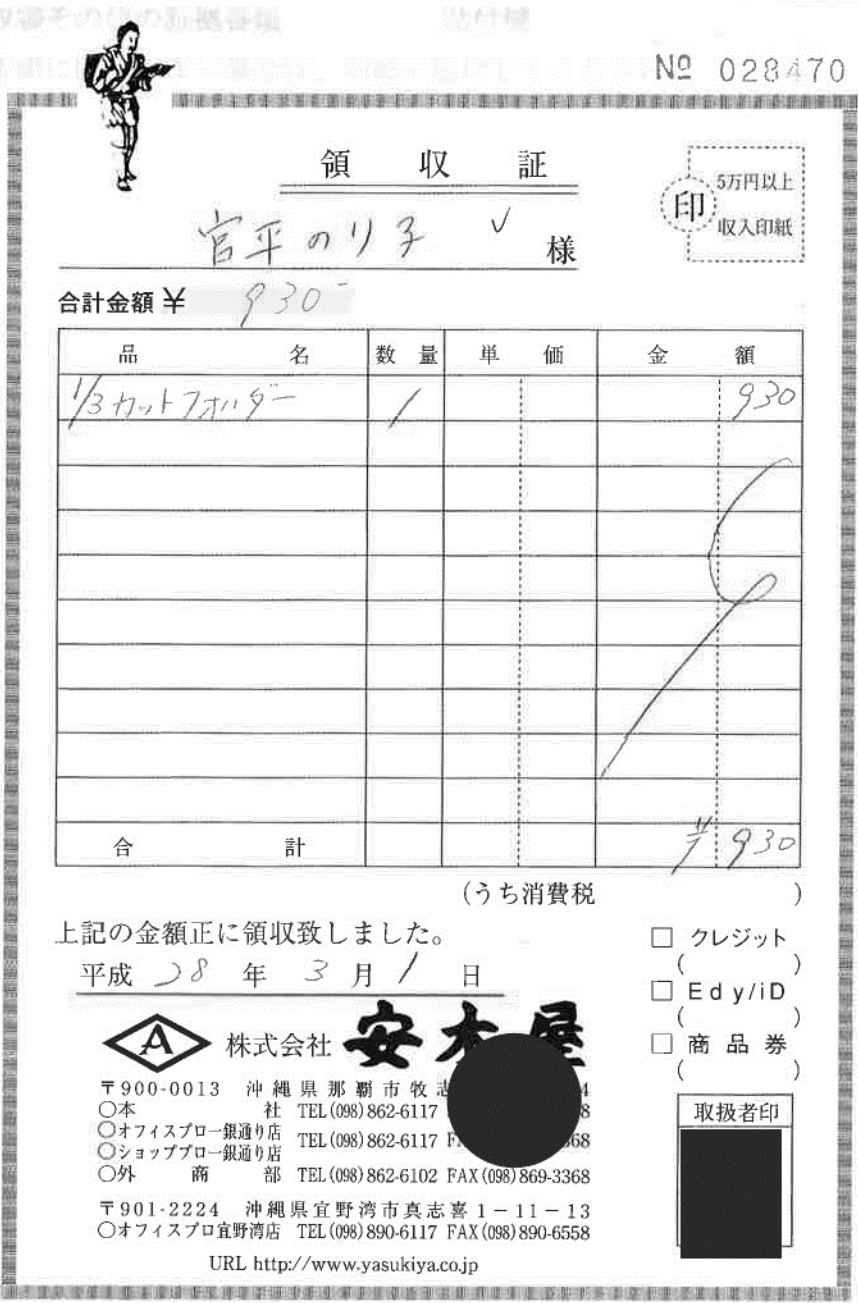 № 028470
領収証
5万円以上
印
収入印紙
宮平のり子 様
合計金額 ¥ 930-
品名 数量 単価 金額
1/3カットフォルダー 1 930
合計 ¥930
(うち消費税 )
上記の金額正に領収致しました。
平成 28 年 3 月 1 日
□ クレジット
( )
□ Edy/iD
( )
□ 商品券
( )
A 株式会社 安木屋
〒900-0013 沖縄県那覇市牧志
○本社 TEL(098)862-6117
○オフィスプロ一銀通り店
○ショッププロ一銀通り店 TEL(098)862-6117
○外商部 TEL(098)862-6102 FAX(098)869-3368
〒901-2224 沖縄県宜野湾市真志喜1-11-13
○オフィスプロ宜野湾店 TEL(098)890-6117 FAX(098)890-6558
URL http://www.yasukiya.co.jp
取扱者印